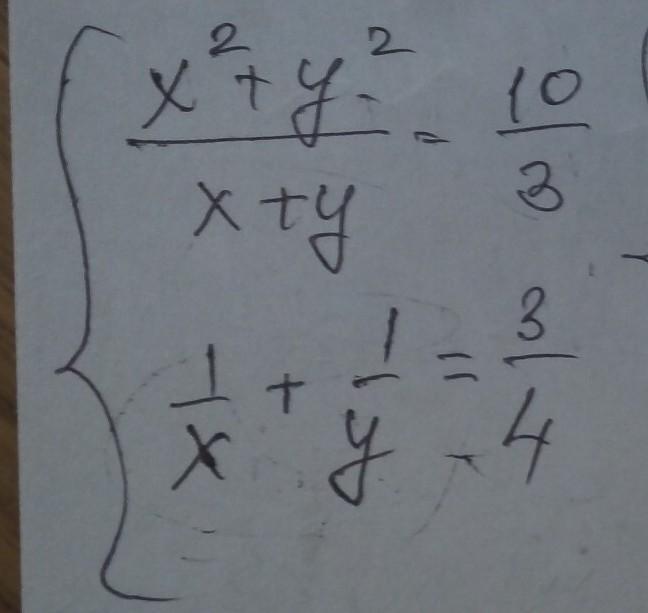 x² + y² / x + y = 10 / 3
1/x + 1/y = 3/4